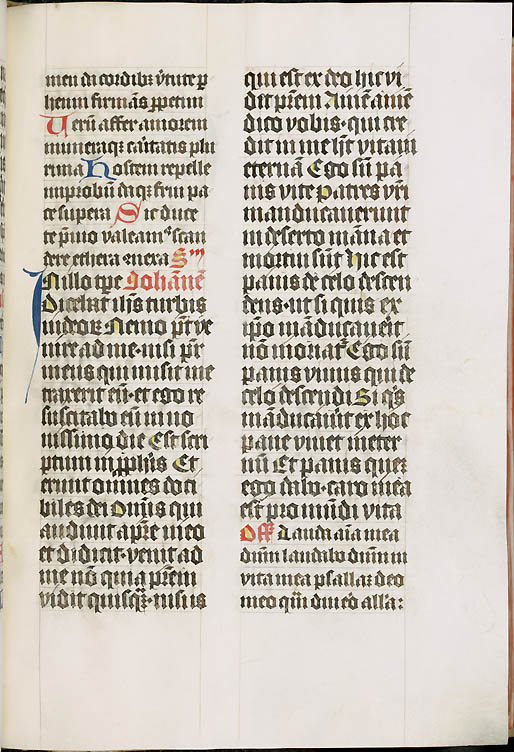 men da cordibꝫ v̓tute ꝑ
henni firmãs ꝑpetim
Uerũ affer amorem
muneraqꝫ cãtatis plu
rima Hostem repelle
improbũ daqꝫ frui pa
ce supera Sic duce
te p̃uio valeamꝰ scan
dere ethera mera Sᵐ
In illo tꝑe Johãnẽ
Dicebat ih̃s turbis
iudeoꝝ Nemo pt̃ ve
nire ad me· nisi pr̃
meus qui misit me
traxerit eũ· et ego re
suscitabo eũ in no
uissimo die Est scri
ptum in ꝓph̃is Et
erunt omnes doci
biles dei Omĩs qui
audiuit a pr̃e meo
et didicit· venit ad
me nõ quia pr̃em
vidit quisqꝫ· nisi is
qui est ex deo hic vi
dit pr̃em Amẽ amẽ
dico vobis· qui cre
dit in me hʒ vitam
eternã Ego sũ pa
nis vite Patres vr̃i
manducauerunt
in deserto manna et
mortui sũt Hic est
panis de celo descen
dens· ut si quis ex
ip̃o mãducauerit
nõ moriat᷑ Ego sũ
panis viuus qui de
celo descendi Si qͥs
mãducau̓it ex hoc
pane viuet in eter
nũ Et panis queꝫ
ego dabo· caro mea
est pro mũdi vita
Off̃ Lauda aĩa mea
dñm laudabo dñm in
vita mea psallaꝫ deo
meo qm̃ diu ero all̃a: